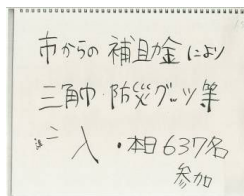 市からの補助金により
三角巾・防災グッツ等
ニ入・本日637名
参加